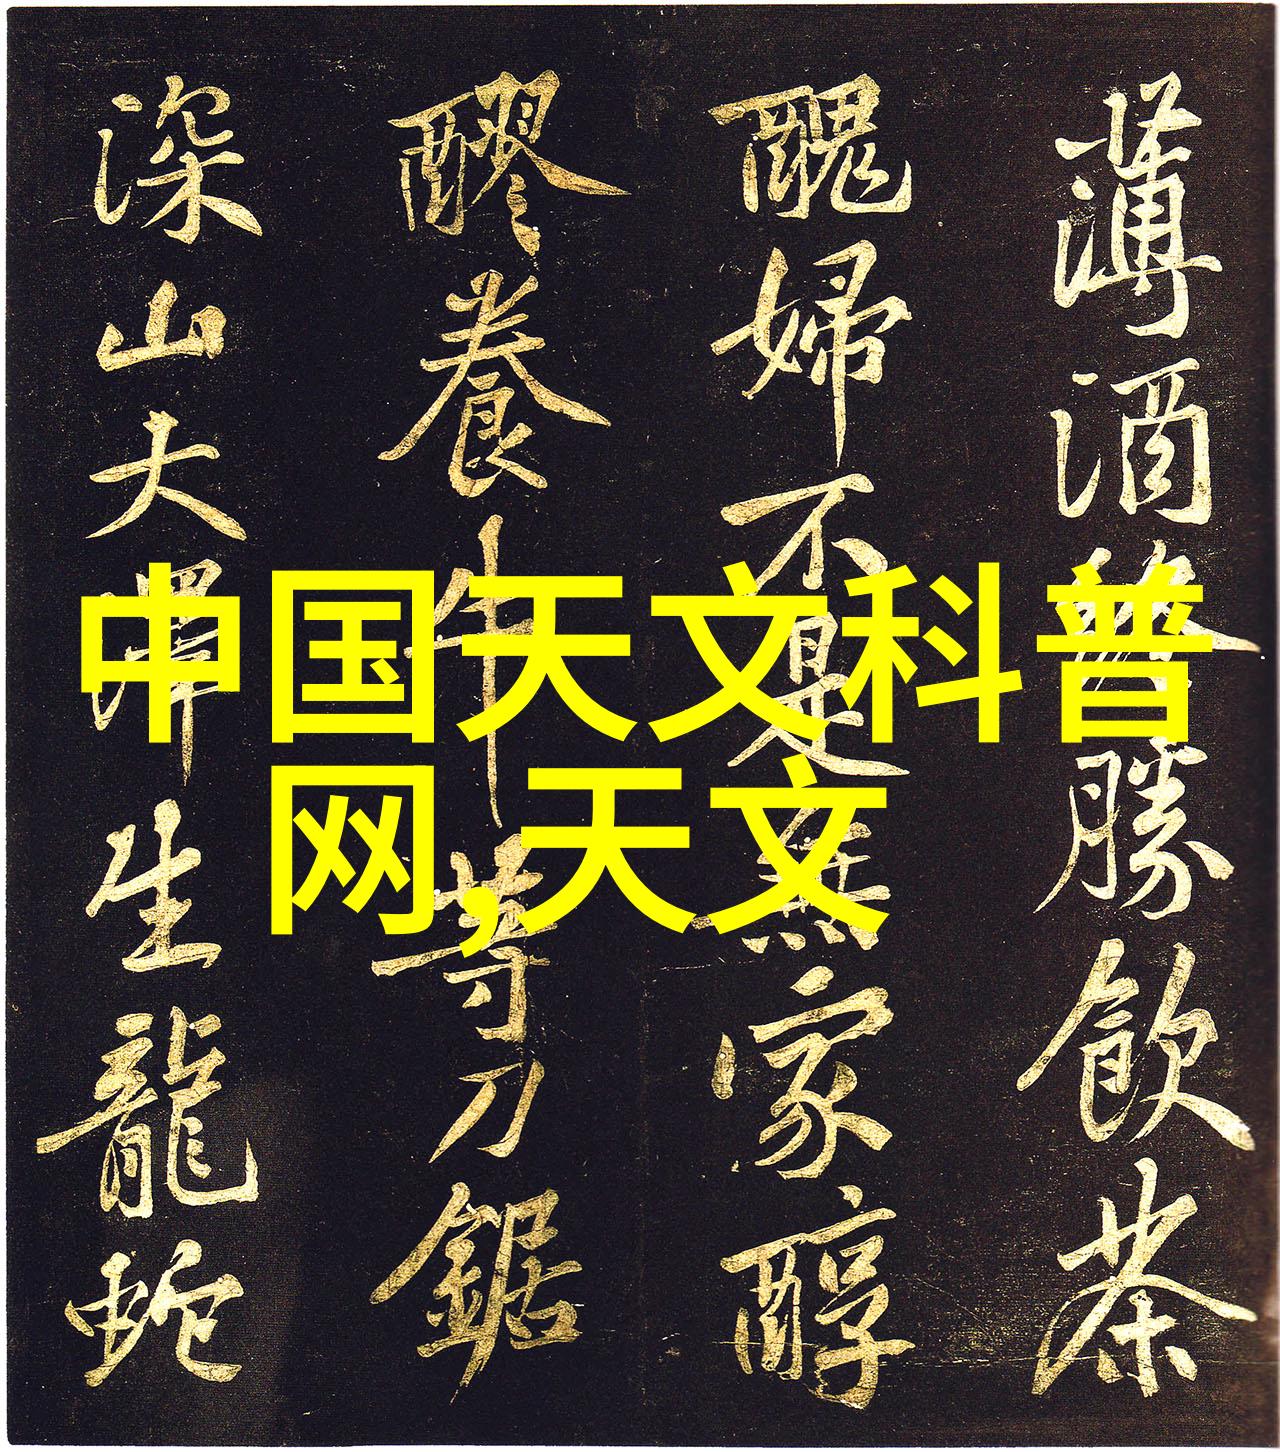 中国天文科普
网,天文
薄酒終勝飲茶
醜婦不是無家醇
醪養牛等刀鋸
深山大澤生龍蛇